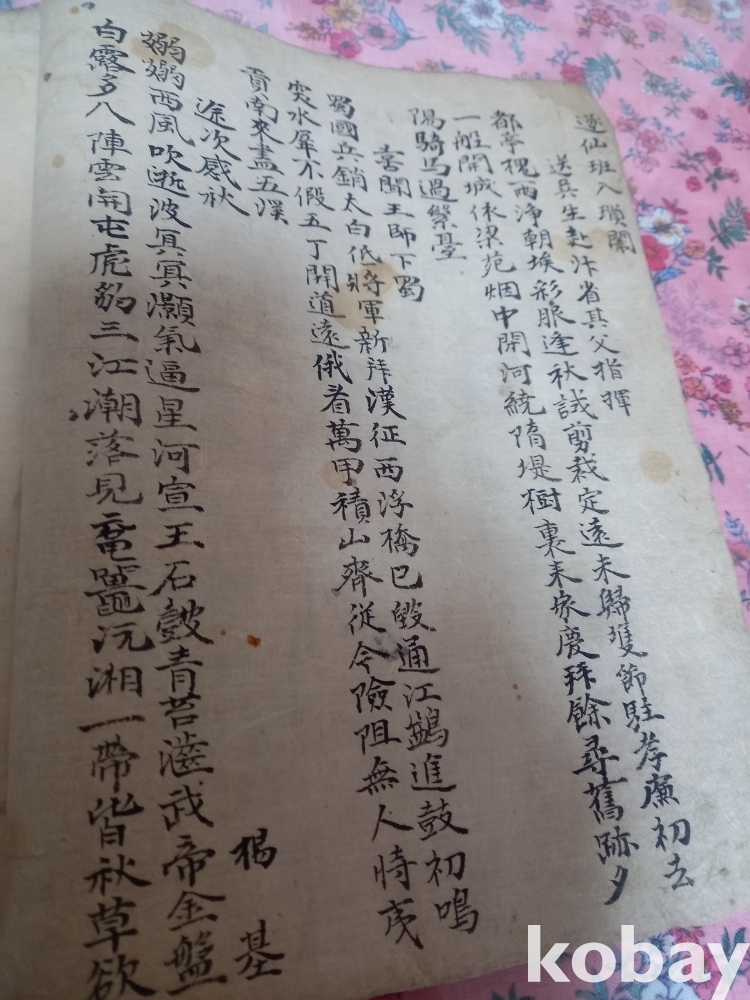 逐仙班入瑣闈
送吳生赴汴省其父指揮
都亭槐西淨朝埃彩服逢秋試剪裁定遠未歸雙節駐孝廉初去
一般開城依梁苑烟中開河繞隋堤樹裏來家慶拜餘尋舊跡夕
陽騎馬過繁臺
喜聞王師下蜀
蜀國兵銷太白低將軍新拜漢征西浮橋已毀通江鷁進鼓初鳴
突水犀不假五丁開道遠俄看萬甲積山齊從今險阻無人恃
貢南來盡五溪
途次感秋 楊基
嫋嫋西風吹逝波冥冥灝氣逼星河宣王石鼓青苔澁武帝金盤
白露多八陣雲開屯虎豹三江潮落見黿鼉沅湘一帶皆秋草欲
kobay